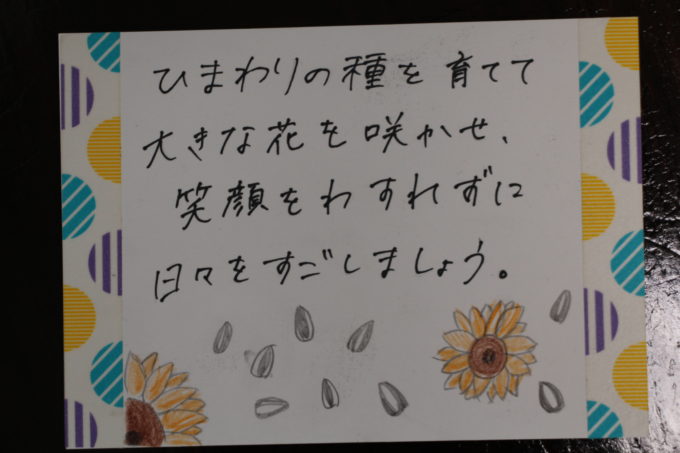 ひまわりの種を育てて
大きな花を咲かせ、
笑顔をわすれずに
日々をすごしましょう。